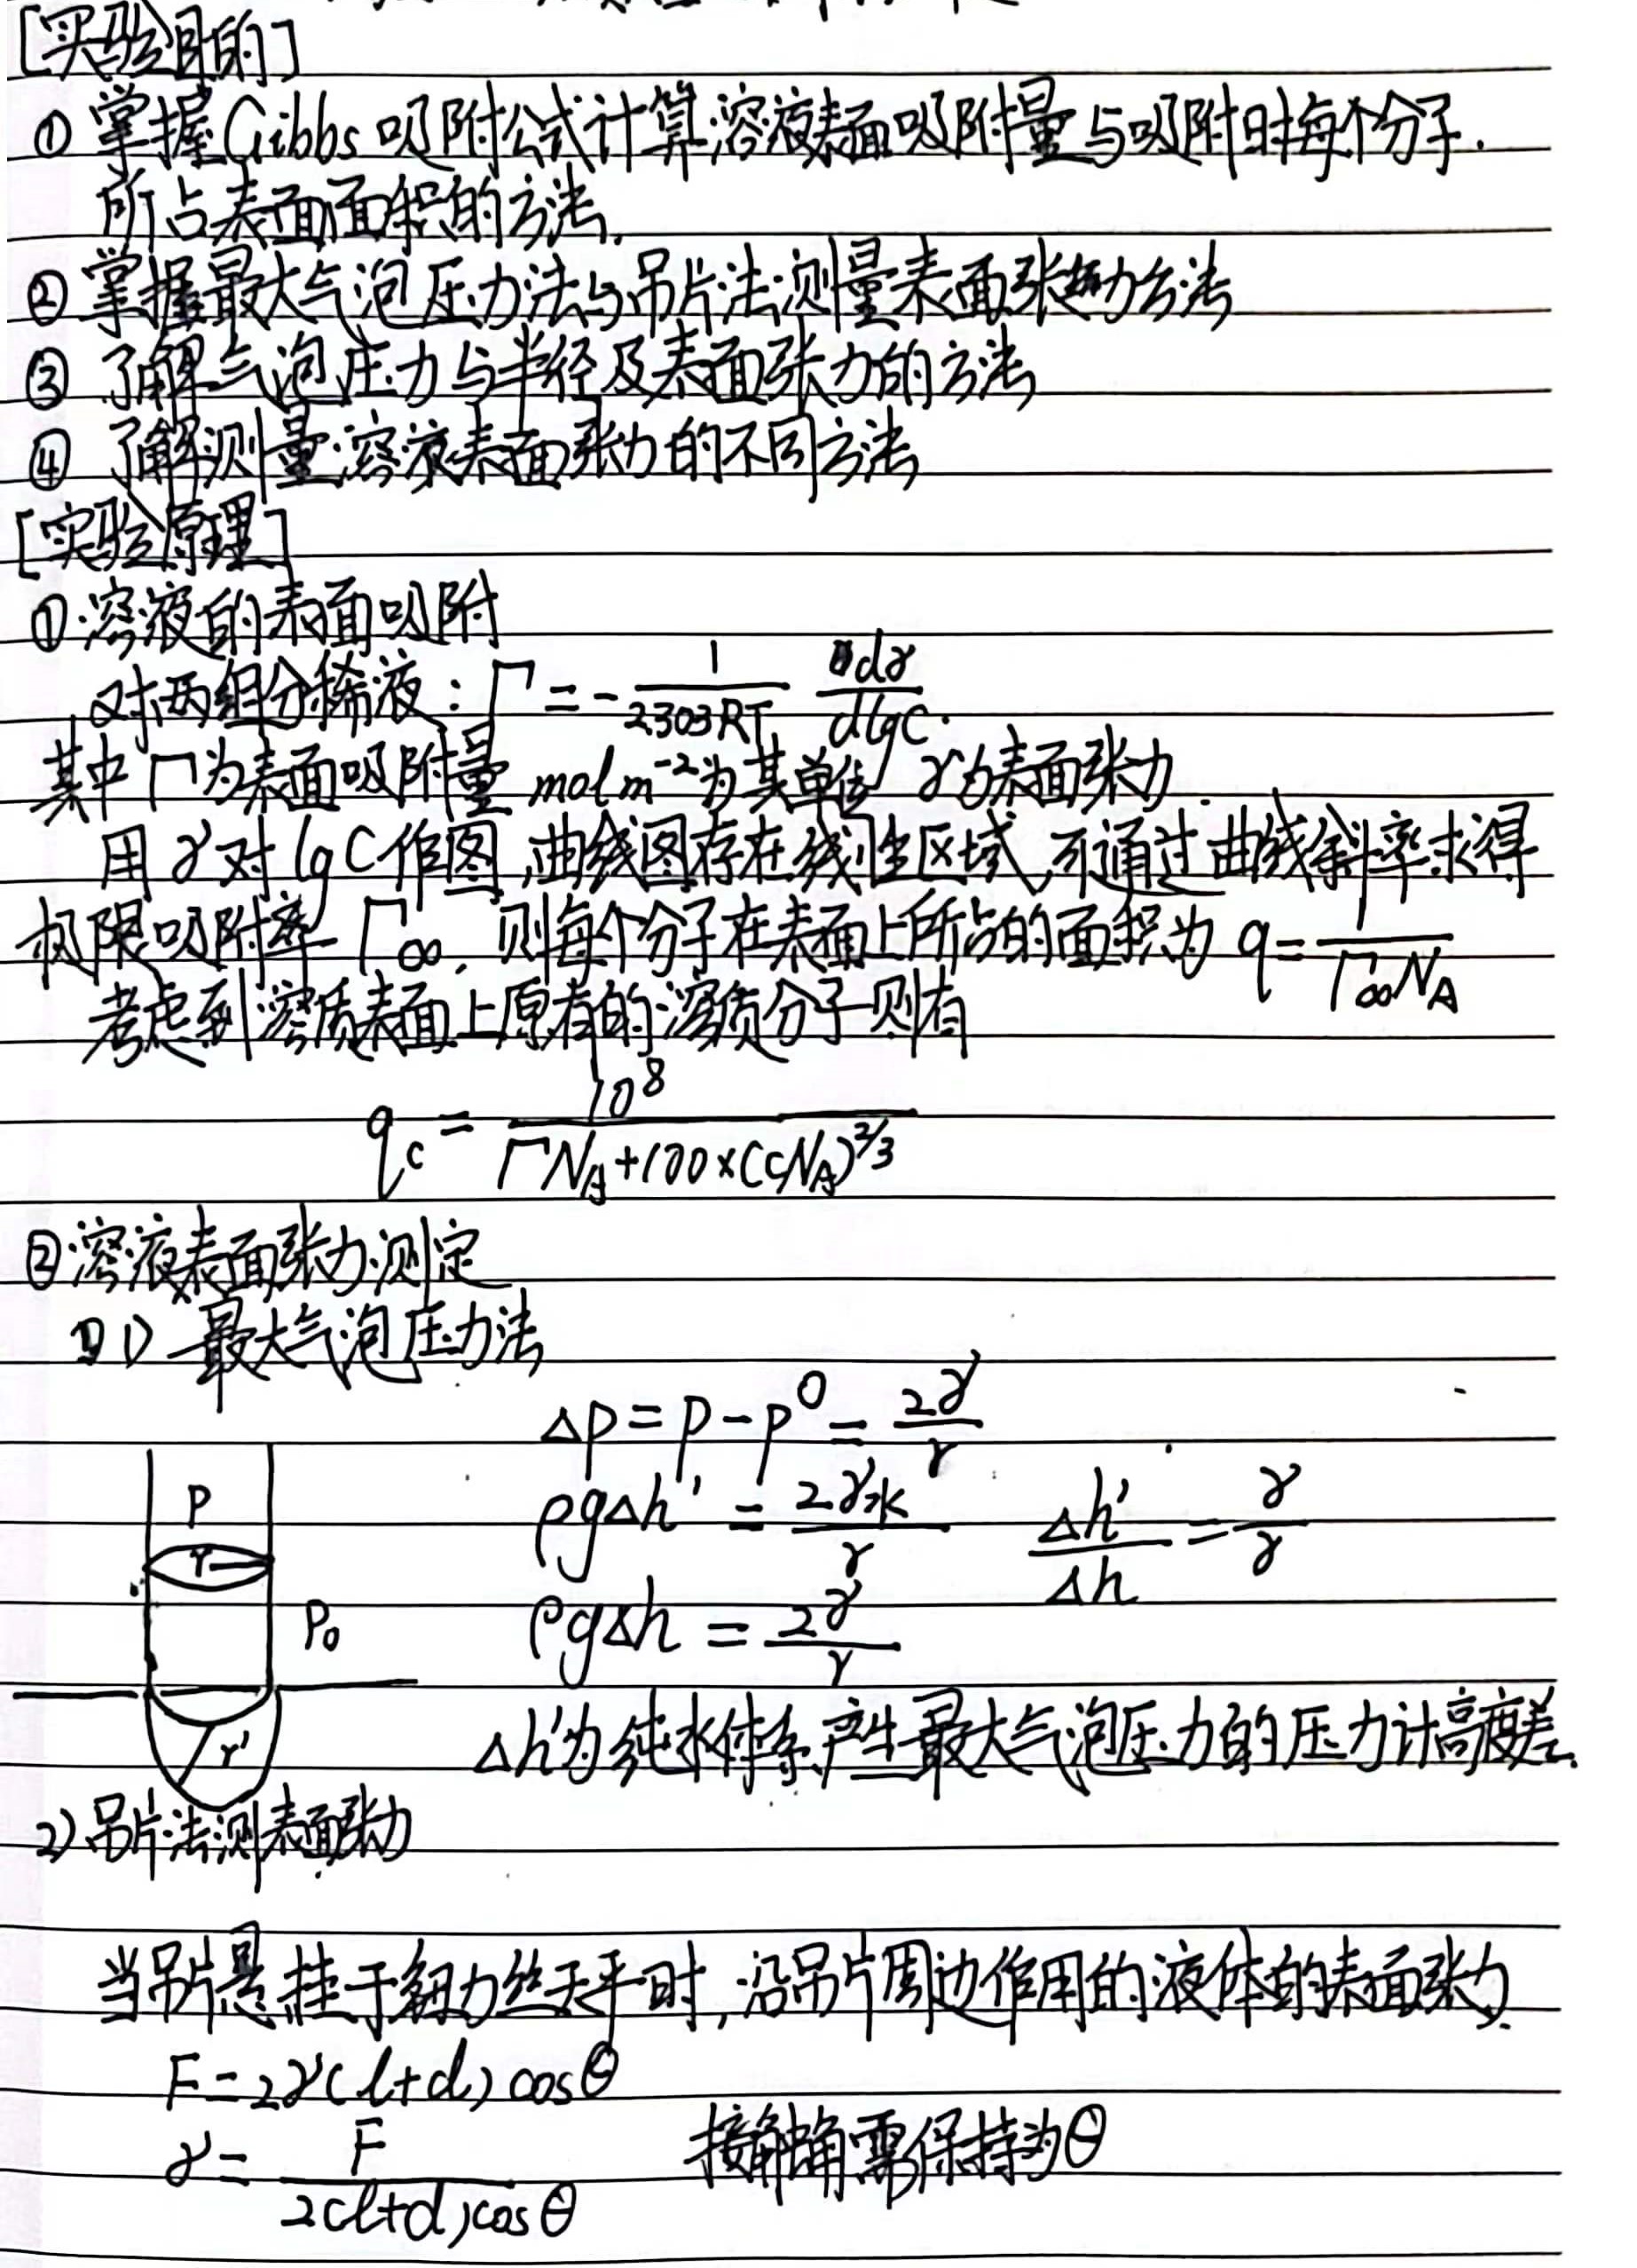 [实验目的]
① 掌握Gibbs吸附公式计算溶液表面吸附量与吸附时每个分子.
所占表面面积的方法.
② 掌握最大气泡压力法与吊片法测量表面张力方法
③ 了解气泡压力与半径及表面张力的方法
④ 了解测量溶液表面张力的不同方法
[实验原理]
①溶液的表面吸附
对两组分稀液: Γ = - 1/(2.303RT) dγ/dlgC.
其中Γ为表面吸附量 mol m⁻²为其单位 γ为表面张力
用γ对lgC作图,曲线图存在线性区域,可通过曲线斜率求得
极限吸附率 Γ∞, 则每个分子在表面上所占的面积为 q = 1/(Γ∞N_A)
考虑到溶质表面上原有的溶质分子则有
q_c = 10⁸/(ΓN_A+100×(cN_A)^(2/3))
②溶液表面张力测定
1) 最大气泡压力法
Δp = p - p⁰ = 2γ/r
P
ρgΔh' = 2γ水/r Δh'/Δh = γ/γ
r
P₀
ρgΔh = 2γ/r
r'
Δh'为纯水体系产生最大气泡压力的压力计高度差.
2) 吊片法测表面张力
当吊片悬挂于扭力丝天平时,沿吊片周边作用的液体的表面张力
F = 2γ(l+d) cosθ
γ = F/(2(l+d)cosθ) 接触角需保持为θ